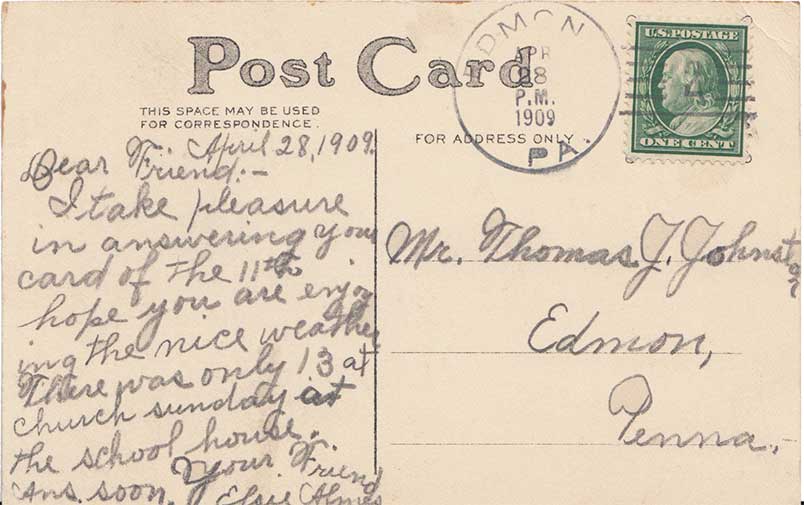 Post Card
THIS SPACE MAY BE USED
FOR CORRESPONDENCE.
FOR ADDRESS ONLY
EDMON
APR
28
P.M.
1909
PA.
U.S. POSTAGE
ONE CENT
April 28, 1909.
Dear Friend:-
I take pleasure
in answering your
card of the 11th
hope you are enjoy
ing the nice weather
There was only 13 at
church sunday at
the school house.
Your Friend
Ans. soon. Elsie Ahmes
Mr. Thomas J. Johnston
Edmon,
Penna.